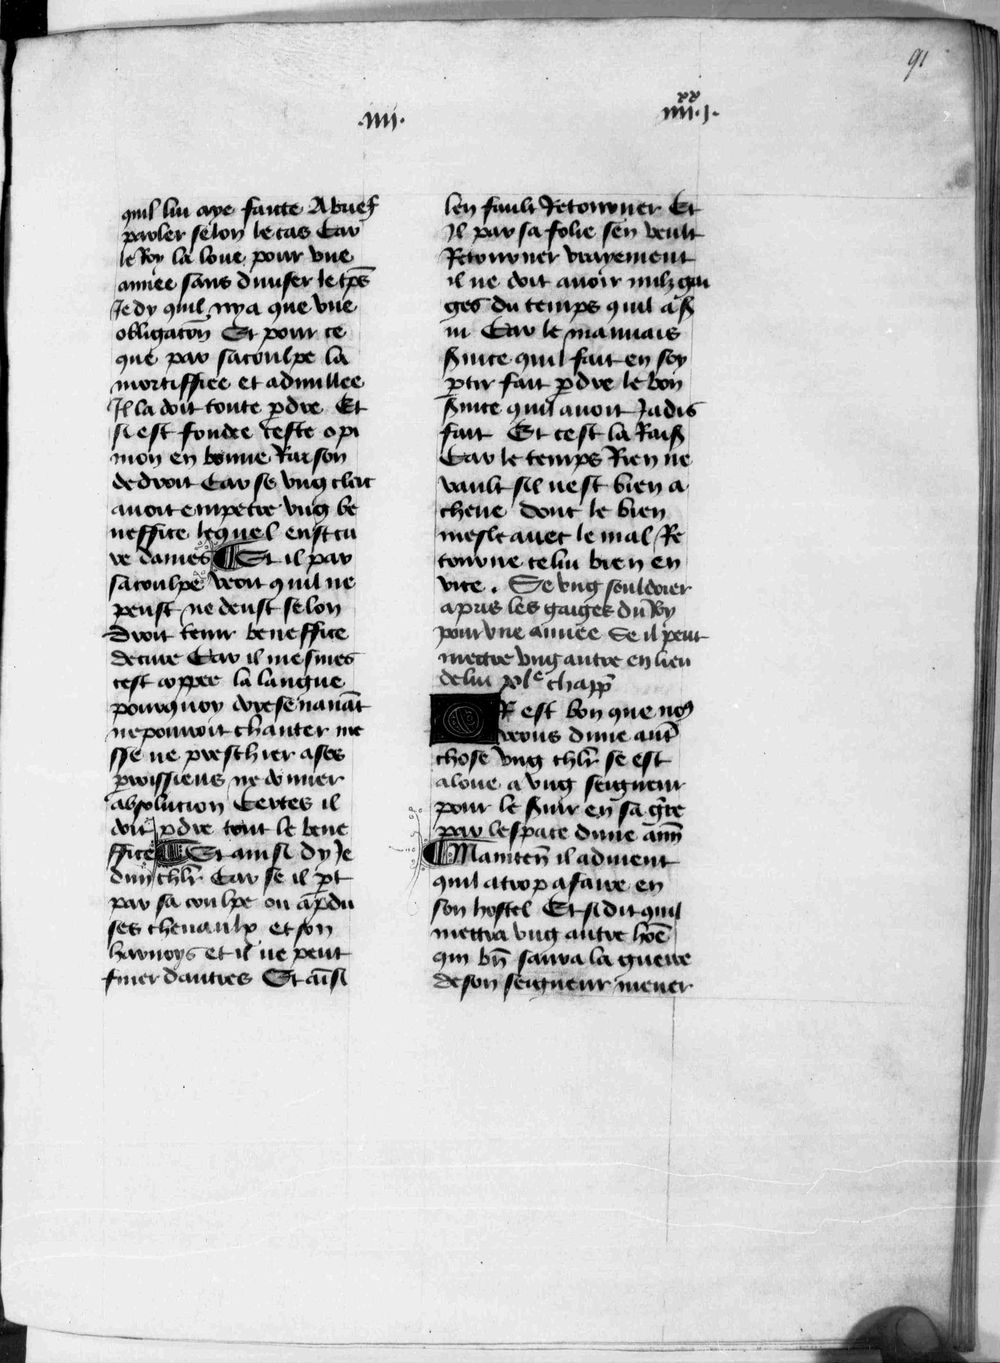 91
.iiii.
xx
iiii.j.
quil lui aye faicte A brief
parler selon le cas Car
le Roy la loue pour vne
annee sans diuiser le tp̄s
Je dy quil ny a que vne
obligacōn Et pour ce
que par sa coulpe la
mortiffiee et adnullee
Il la doit toute ꝑdre Et
si est fondee ceste opi
nion en bonne Raison
de droit Car se vng clerc
auoit empetre vng be
neffice lequel eust cu
re dames Et il par
sa coulpe veoit quil ne
peust ne deust selon
droit tenir beneffice
de cure Car il mesmes
cest copper la langue
pourquoy doresenauāt
ne pourroit chanter me
sse ne preschier a ses
parroissiens ne donner
absolution Certes il
doit ꝑdre tout le bene
ffice Et ainsi dy Je
dun chlr̄ Car se il ꝑt
par sa coulpe ou a ꝑdu
ses cheuaulx et son
harnoys et il ne peut
finer dautres Et aīsi
len fault Retourner Et
Il par sa folie sen veult
Retourner vrayement
il ne doit auoir nulz gai
ges du temps quil a ser
ui Car le mauuais
seruice quil fait en soy
ꝑtir fait ꝑdre le bon
seruice quil auoit Jadis
fait Et cest la Raisō
Car le temps Rien ne
vault sil nest bien a
cheue dont le bien
mesle auec le mal Re
tourne celui bien en
vice . Se vng souldoier
a pris les gaiges du Roy
pour vne annee Se il peut
mettre vng autre en lieu
de lui xle chapp̄
OR est bon que no9
veons dune autr̄
chose vng chlr̄ se est
aloue a vng seigneur
pour le seruir en sa gr̄re
par lespace dune ann̄
Mainten̄ il aduient
quil a trop a faire en
son hostel Et si dit quil
mettra vng autre hōe
qui bn̄ saura la guerre
de son seigneur mener